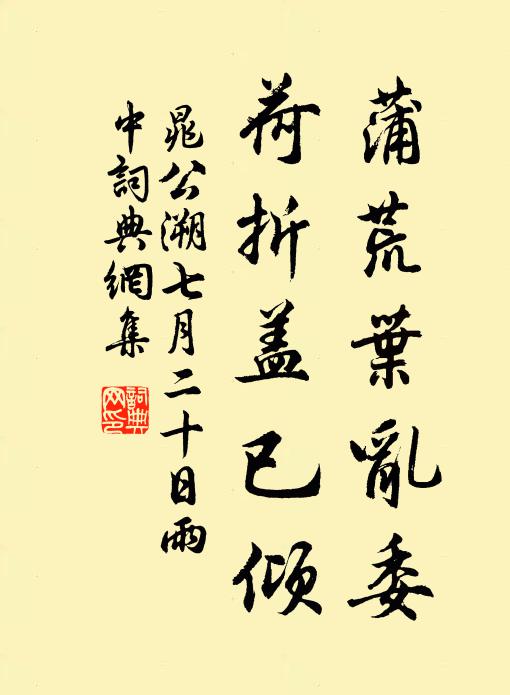 蒲荒葉亂委
荷折盖已傾
晁公溯七月二十日雨
中詞典網集
詞典
网印